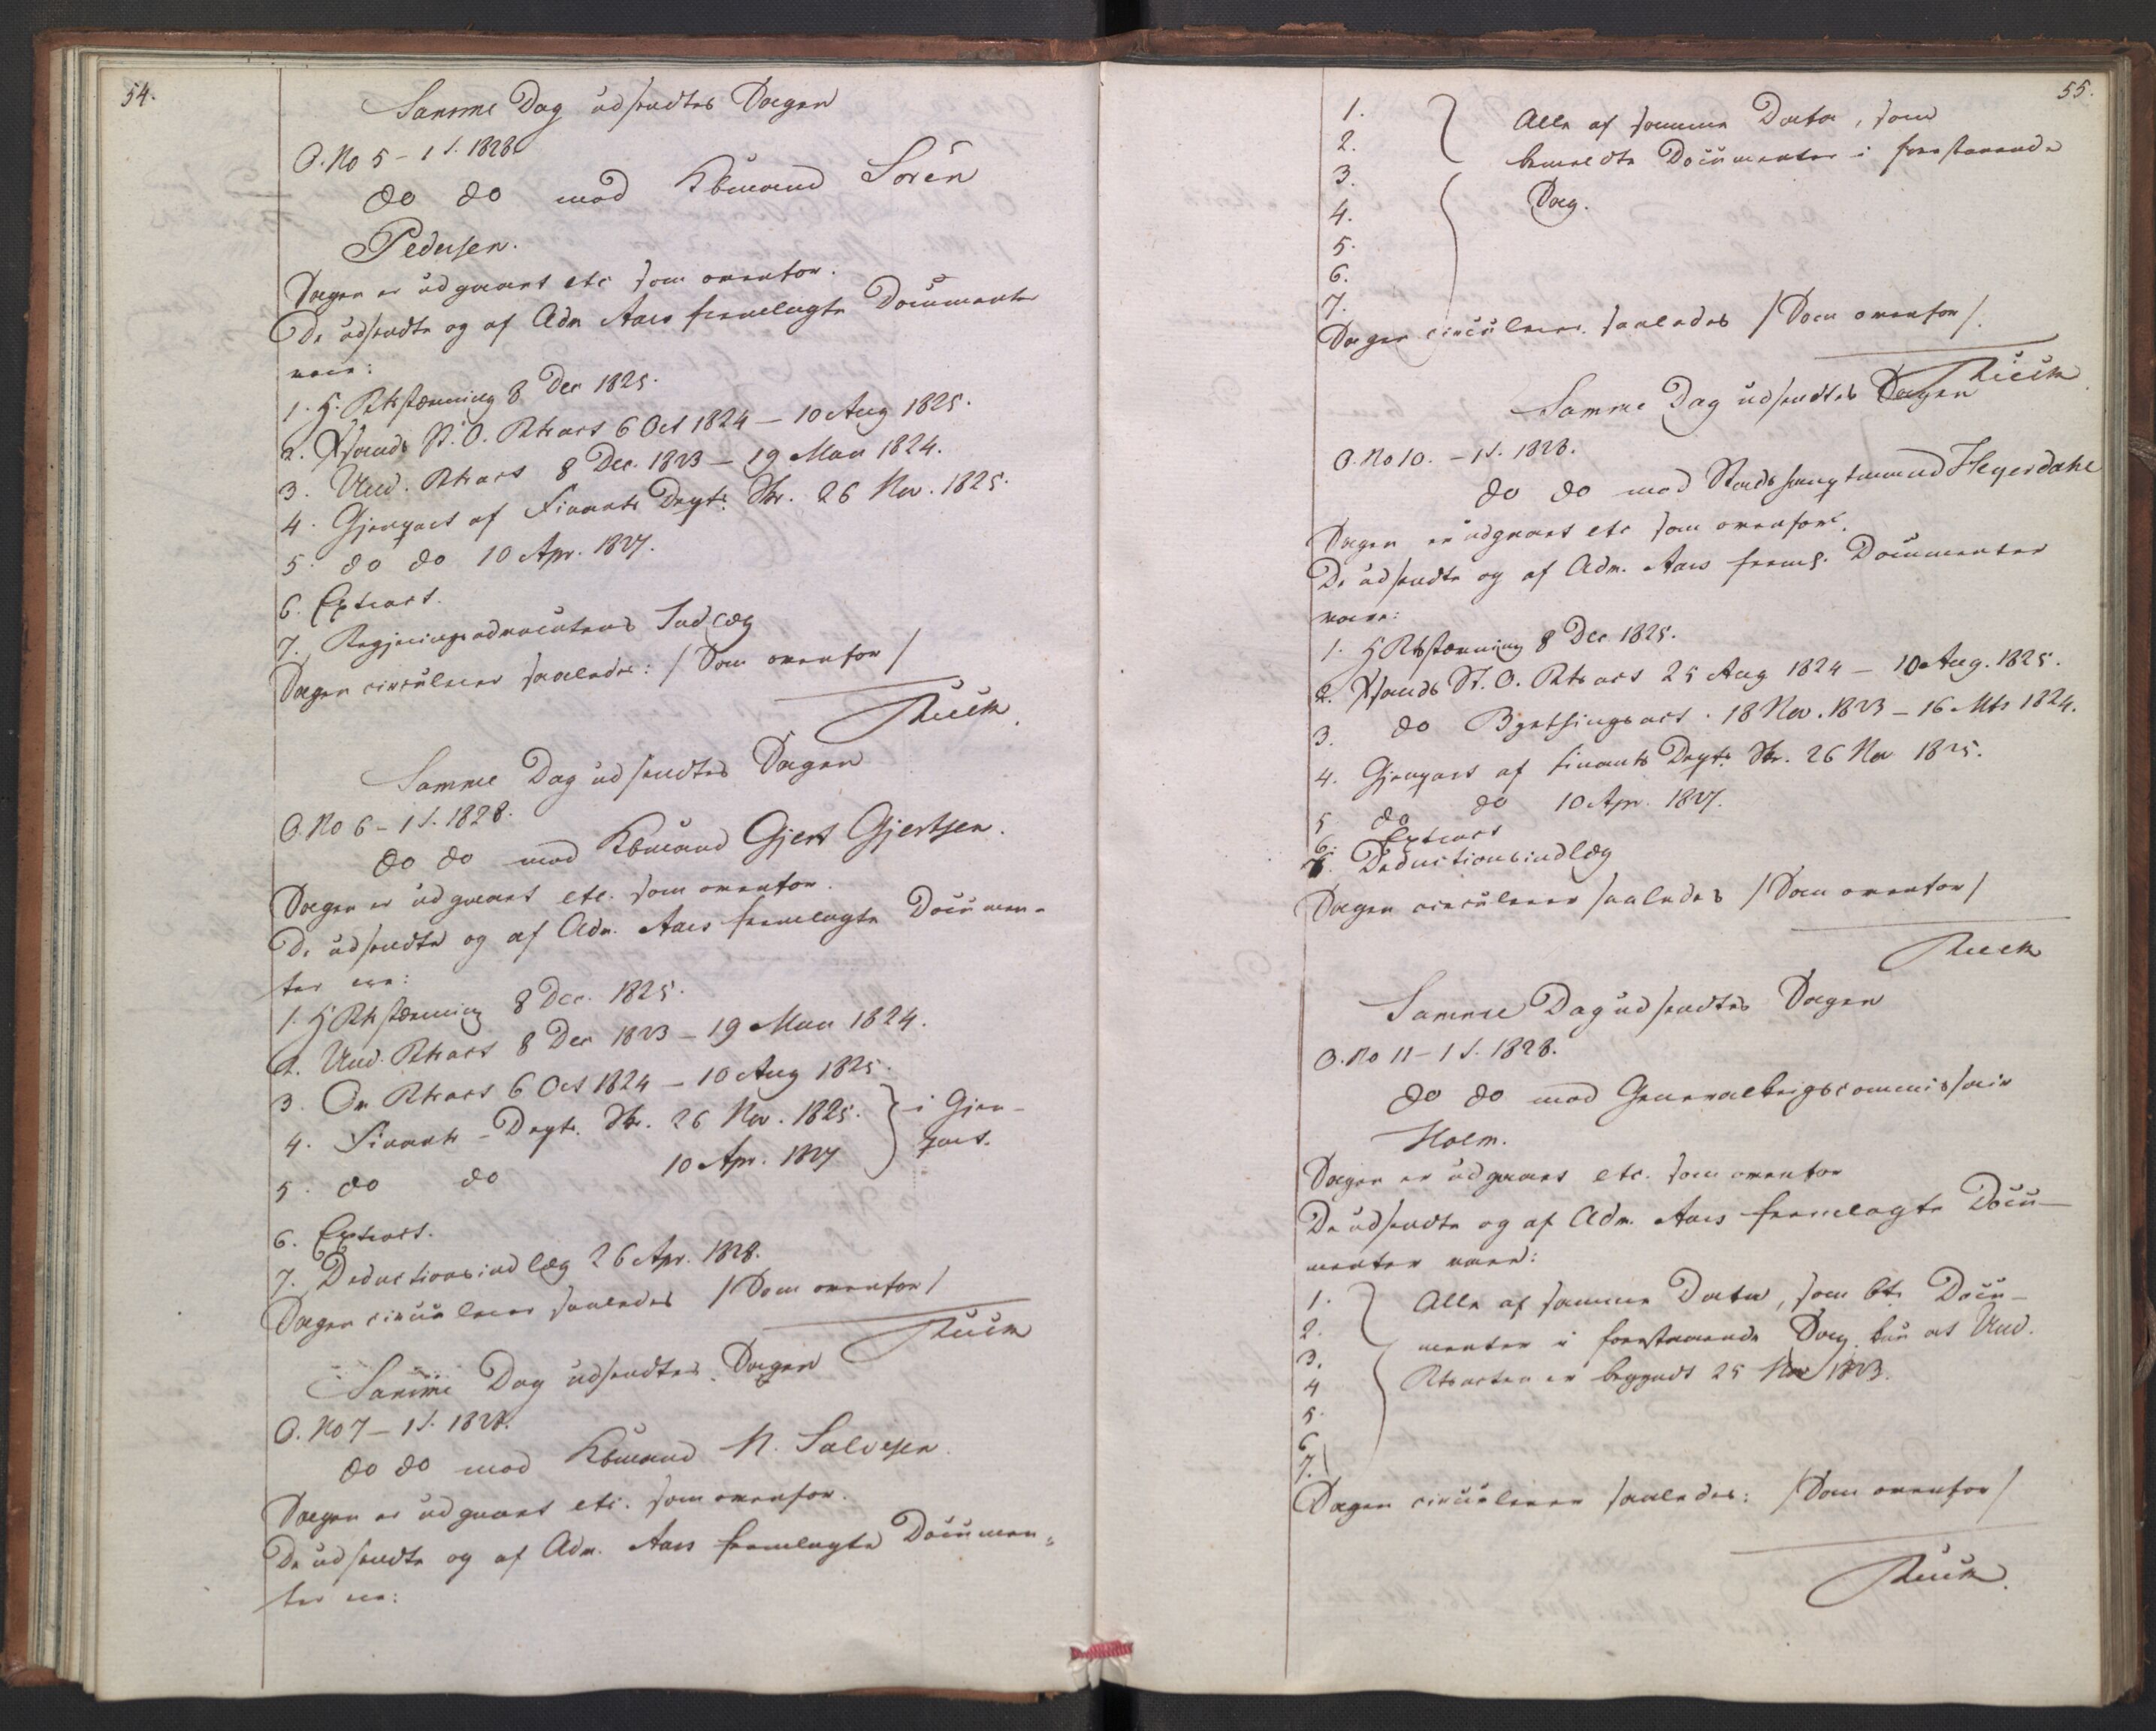 54.
Samme Dag udsendtes Sagen
O. No 5 – 1 S. 1828.
do do mod Kbmand Sören
Pedersen.
Sagen er udgaaet etc som ovenfor.
De udsendte og af Adv. Aars fremlagte Documenter
vare:
1. H. Rtsstævning 8 Dec 1825.
2. Xsands St. O. Rtsact 6 Oct 1824 – 10 Aug 1825.
3. Und. Rtsact 8 Dec. 1823 – 19 Mai 1824.
4. Gjenpart af Finants Dept. Skr. 26 Nov. 1825.
5. do do 10 Apr. 1827.
6. Extract.
7. Regjeringsadvocatens Indlæg
Sagen circulerer saaledes: / Som ovenfor /
Samme Dag udsendtes Sagen
O. No 6 – 1 S. 1828.
do do mod Kbmand Gjert Gjertsen.
Sagen er udgaaet etc. som ovenfor.
De udsendte og af Adv. Aars fremlagte Documen-
ter ere:
1. H Rtsstævning 8 Dec. 1825.
2. Und. Rtsact 8 Dec 1823 – 19 Mai 1824.
3. Ov Rtsact 6 Oct 1824 – 10 Aug 1825.
4. Finants-Dept. Skr. 26 Nov. 1825. } i Gjen-
5. do do 10 Apr. 1827 } part.
6. Extract.
7. Deductionsindlæg 26 Apr. 1828.
Sagen circulerer saaledes / Som ovenfor /
Samme Dag udsendtes Sagen
O. No 7 – 1 S. 1828.
do do mod Kbmand N. Salvesen.
Sagen er udgaaet etc. som ovenfor.
De udsendte og af Adv. Aars fremlagte Documen-
ter ere:
55.
1. } Alle af samme Data, som
2. bemeldte Documenter i forestaaende
3. Sag.
4.
5.
6.
7.
Sagen circulerer saaledes / Som ovenfor /.
Samme Dag udsendtes Sagen
O. No 10. – 1 S. 1828.
do do mod Stadshauptmand Heyerdahl
Sagen er udgaaet etc som ovenfor.
De udsendte og af Adv. Aars freml. Documenter
vare:
1. H Rtsstævning 8 Dec 1825.
2. Xsands St. O. Rtsact 25 Aug 1824 – 10 Aug. 1825.
3. do Bythingsact. 18 Nov. 1823 – 16 Mts 1824.
4. Gjenpart af Finants Dept. Skr. 26 Nov 1825.
5 do do 10 Apr. 1827.
6. Extract
7. Deductionsindlæg
Sagen circulerer saaledes / Som ovenfor /
Samme Dag udsendtes Sagen
O. No 11 – 1 S. 1828.
do do mod Generalkrigscommissair
Holm.
Sagen er udgaaet etc. som ovenfor
De udsendte og af Adv. Aars fremlagte Docu-
menter vare:
1. } Alle af samme Data, som bte Docu-
2. menter i forestaaende Sag kun at Und.
3. Rtsacten er begyndt 25 Nov 1823.
4
5.
6
7.
Sagen circulerer saaledes: / Som ovenfor /